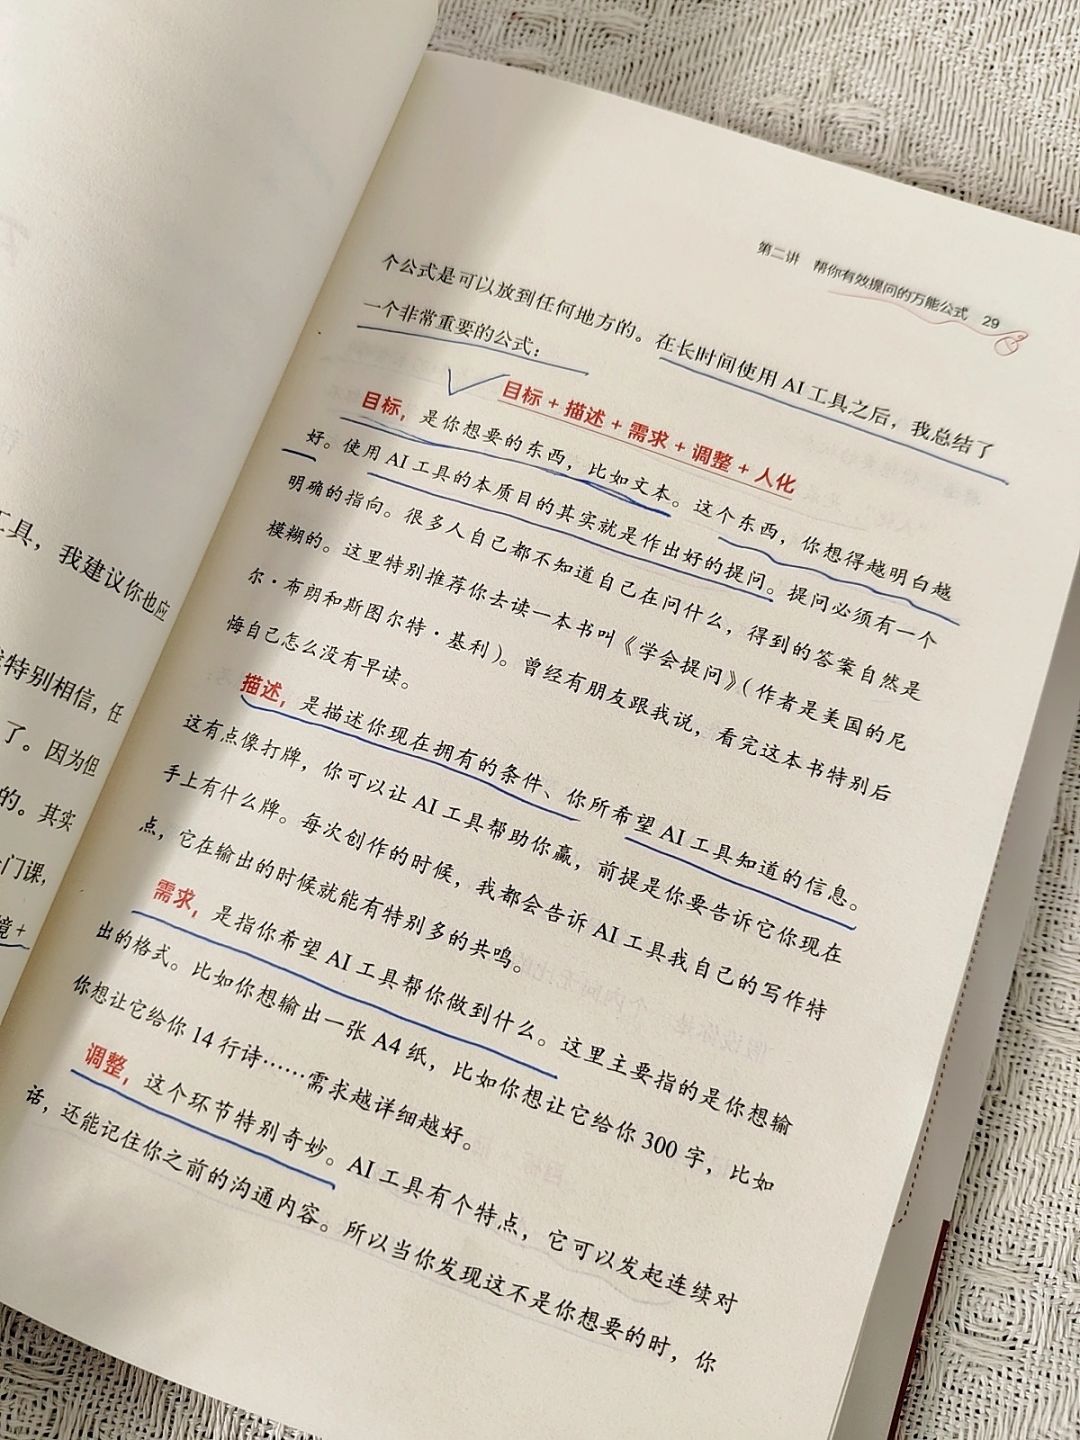 工具，我建议你也应
特别相信，任
了。因为但
的。其实
门课，
境+
第二讲 帮你有效提问的万能公式 29
个公式是可以放到任何地方的。在长时间使用AI工具之后，我总结了
一个非常重要的公式：
目标+描述+需求+调整+人化
目标，是你想要的东西，比如文本。这个东西，你想得越明白越
好。使用AI工具的本质目的其实就是作出好的提问。提问必须有一个
明确的指向。很多人自己都不知道自己在问什么，得到的答案自然是
模糊的。这里特别推荐你去读一本书叫《学会提问》（作者是美国的尼
尔·布朗和斯图尔特·基利）。曾经有朋友跟我说，看完这本书特别后
悔自己怎么没有早读。
描述，是描述你现在拥有的条件、你所希望AI工具知道的信息。
这有点像打牌，你可以让AI工具帮助你赢，前提是你要告诉它你现在
手上有什么牌。每次创作的时候，我都会告诉AI工具我自己的写作特
点，它在输出的时候就能有特别多的共鸣。
需求，是指你希望AI工具帮你做到什么。这里主要指的是你想输
出的格式。比如你想输出一张A4纸，比如你想让它给你300字，比如
你想让它给你14行诗……需求越详细越好。
调整，这个环节特别奇妙。AI工具有个特点，它可以发起连续对
话，还能记住你之前的沟通内容。所以当你发现这不是你想要的时，你